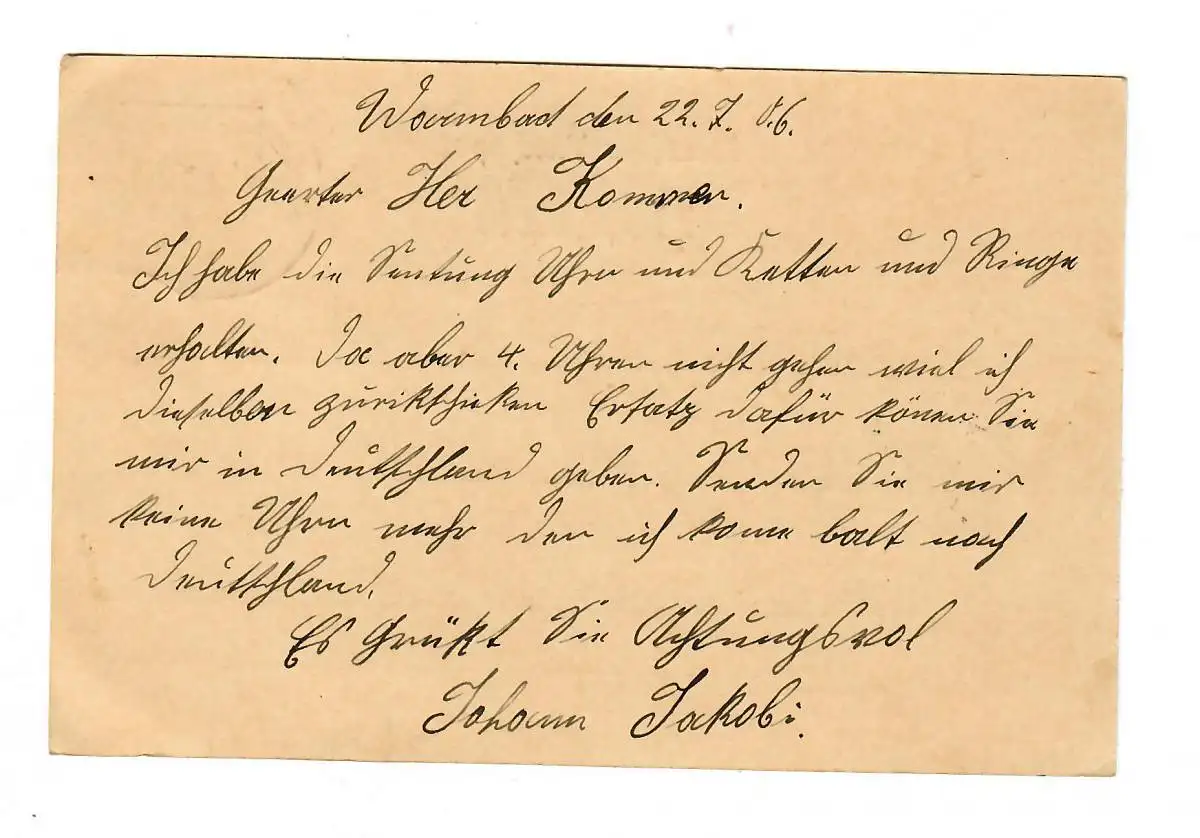 Warmbad den 22. 7. 06.
Geerter Her Kommer.
Ich habe die Sentung Uhrn und Ketten und Ringe
erhalten. Da aber 4. Uhren nicht gehen wiel ich
dieselben zurikschicken Ersatz dafür könen Sie
mir in Deutschland geben. Senden Sie mir
keine Uhrn mehr den ich kome balt nach
Deutschland.
Es Grüßt Sie Achtungsvol
Johann Jakobi.